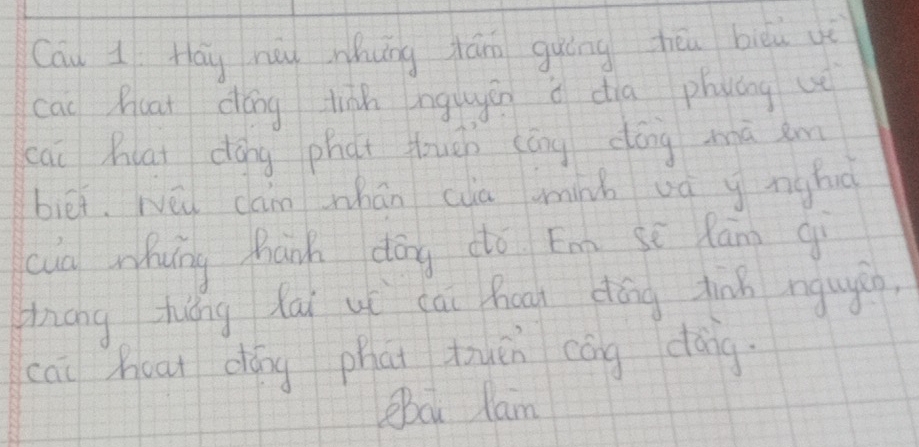 Câu 1. Hãy nêu những tấm gương tiêu biểu về
các hoạt động tình nguyện ở địa phương về
các hoạt động phát triển cộng đồng mà em
biết. Nêu cảm nhận của mình và ý nghĩa
của những hành động đó. Em sẽ làm gì
trong tương lai vì các hoạt động tình nguyện,
các hoạt động phát triển cộng đồng.
Bài làm